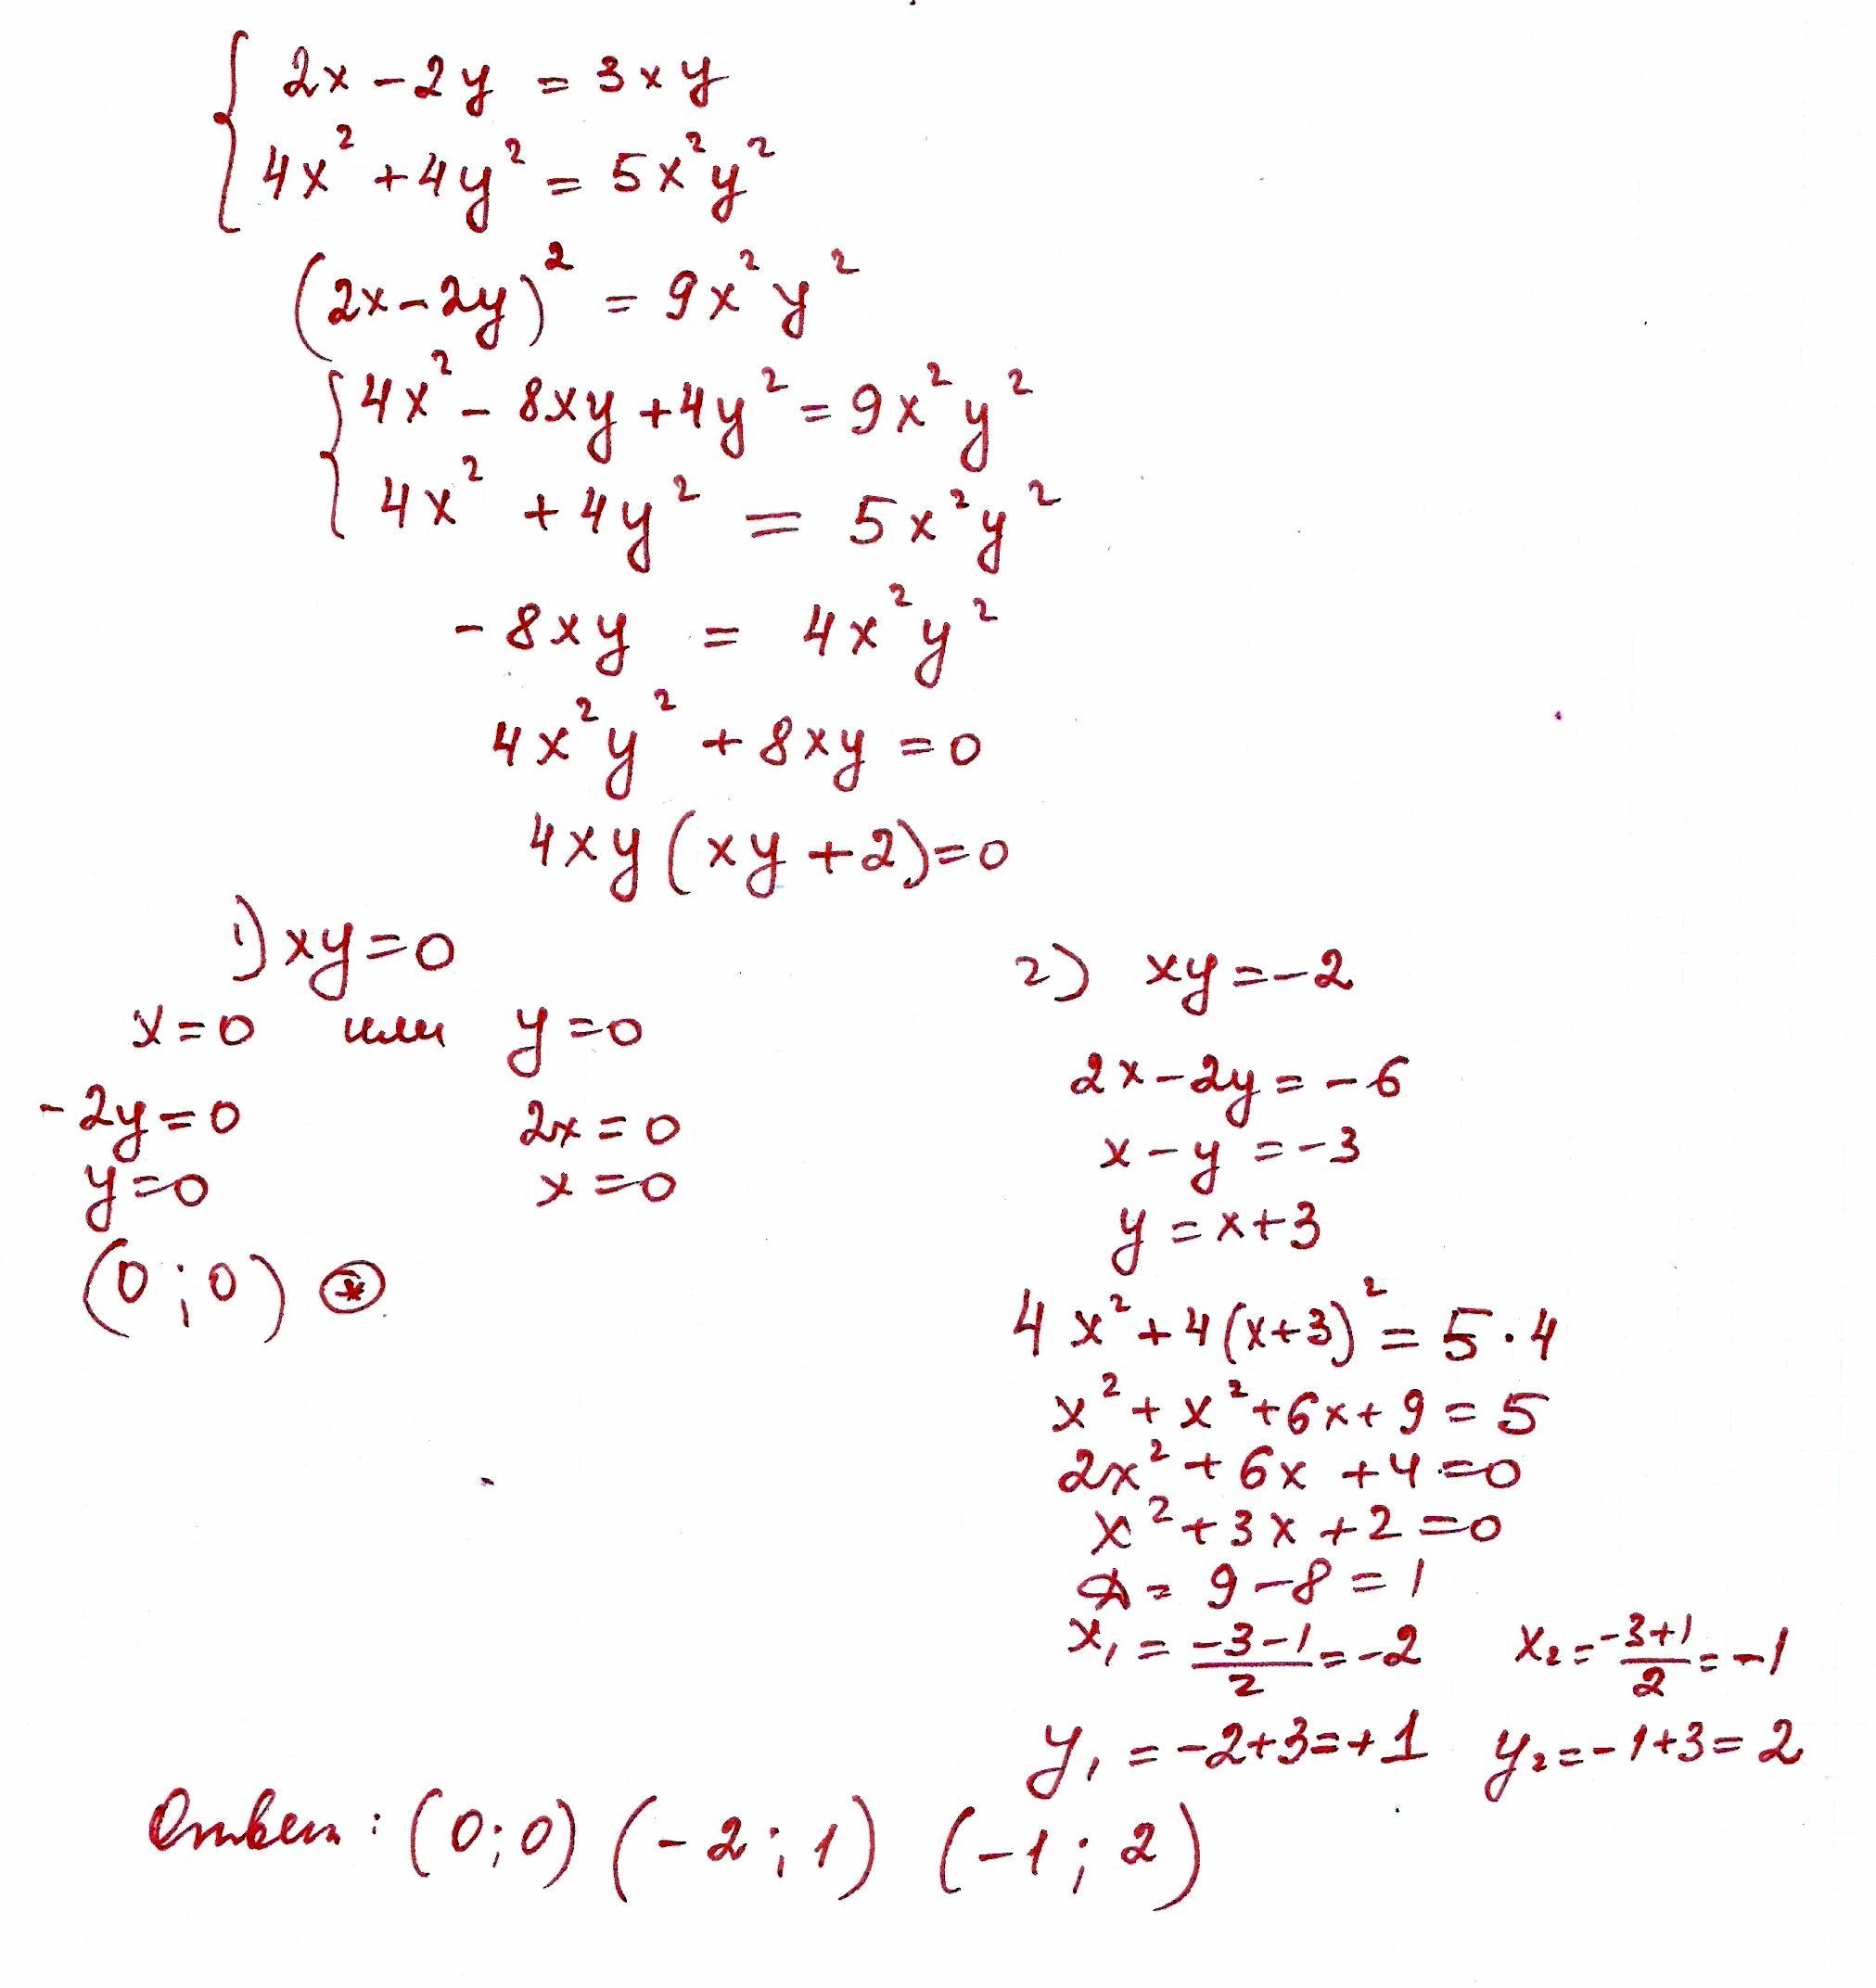 { 2x - 2y = 3xy
4x² + 4y² = 5x²y²
(2x - 2y)² = 9x²y²
{ 4x² - 8xy + 4y² = 9x²y²
4x² + 4y² = 5x²y²
- 8xy = 4x²y²
4x²y² + 8xy = 0
4xy(xy + 2) = 0
1) xy = 0
x = 0 или y = 0
-2y = 0 2x = 0
y = 0 x = 0
(0; 0) ⊛
2) xy = -2
2x - 2y = -6
x - y = -3
y = x + 3
4x² + 4(x+3)² = 5·4
x² + x² + 6x + 9 = 5
2x² + 6x + 4 = 0
x² + 3x + 2 = 0
D = 9 - 8 = 1
x₁ = (-3-1)/2 = -2 x₂ = (-3+1)/2 = -1
y₁ = -2+3 = +1 y₂ = -1+3 = 2
Ответ: (0; 0) (-2; 1) (-1; 2)